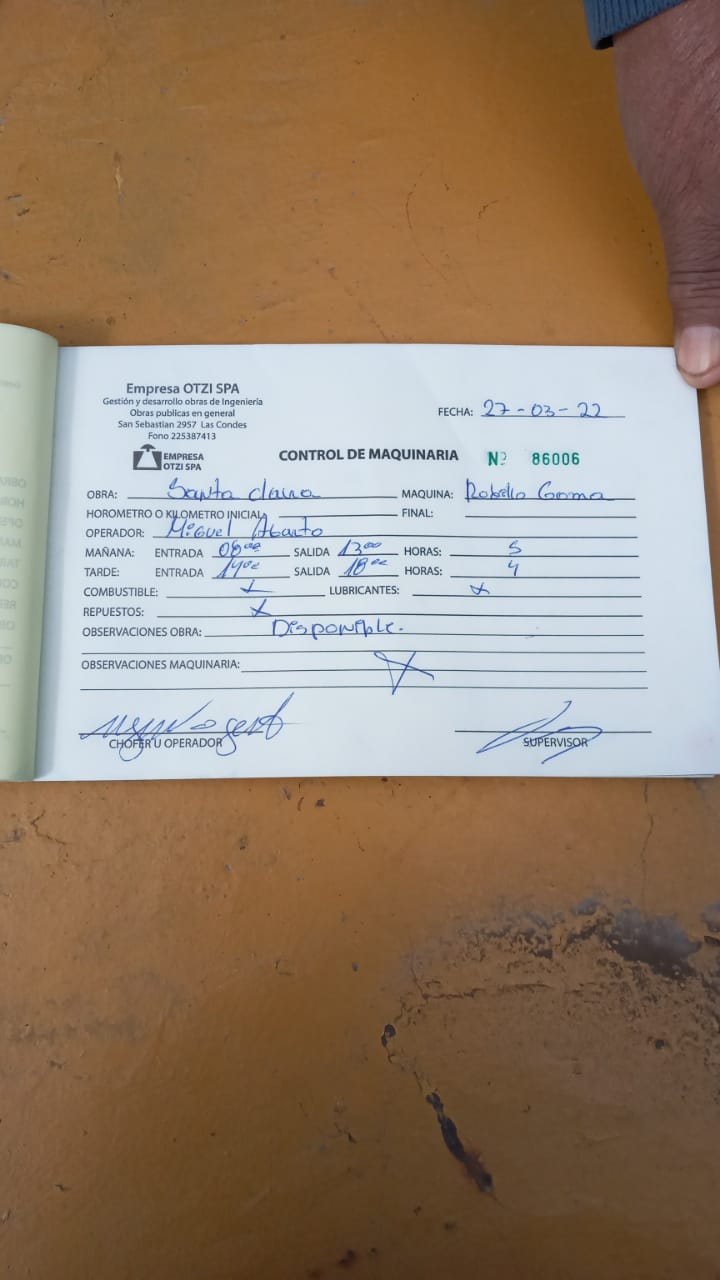 Empresa OTZI SPA
Gestión y desarrollo obras de Ingeniería
Obras publicas en general
San Sebastian 2957 Las Condes
Fono 225387413
EMPRESA
OTZI SPA
FECHA: 27-03-22
CONTROL DE MAQUINARIA Nº 86006
OBRA: Santa clara MAQUINA: Rodillo Goma
HOROMETRO O KILOMETRO INICIAL: FINAL:
OPERADOR: Miguel Abarto
MAÑANA: ENTRADA 08:00 SALIDA 13:00 HORAS: 5
TARDE: ENTRADA 14:00 SALIDA 18:00 HORAS: 4
COMBUSTIBLE: x LUBRICANTES: x
REPUESTOS: x
OBSERVACIONES OBRA: Disponible.
OBSERVACIONES MAQUINARIA: X
CHOFER U OPERADOR SUPERVISOR